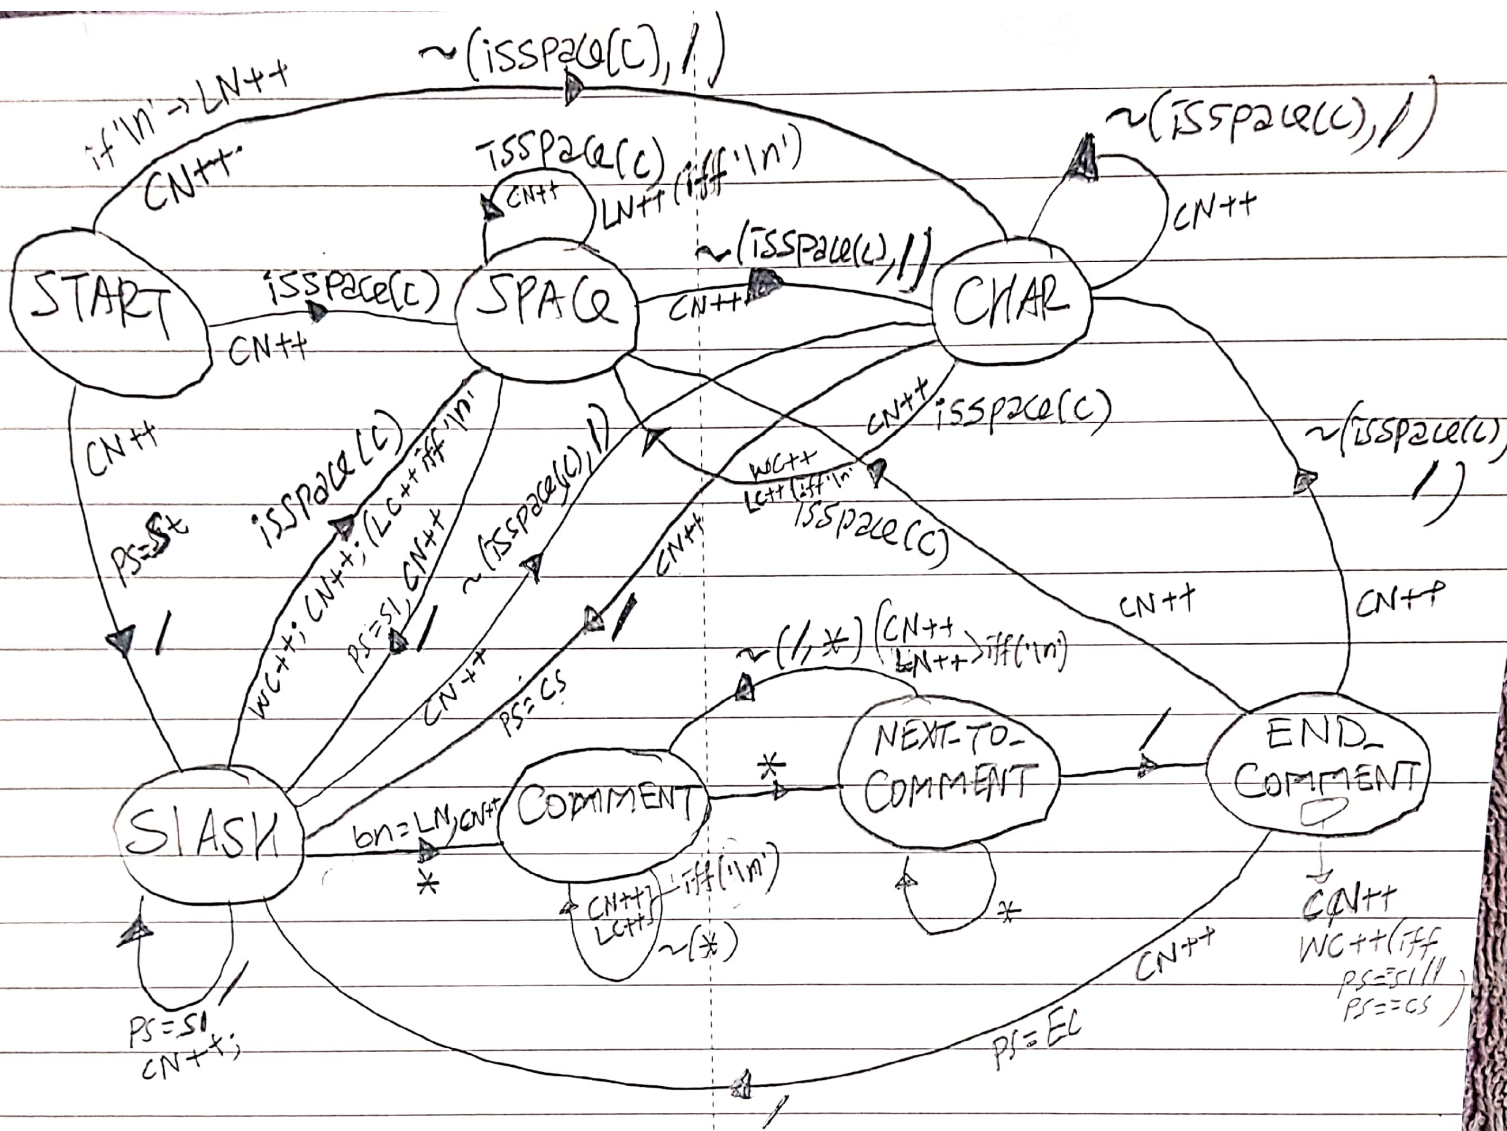 ~(isspace(c), /)
if '\n' → LN++
CN++
~(isspace(c), /)
CN++
isspace(c)
CN++
LN++ (iff '\n')
START
isspace(c)
CN++
SPACE
~(isspace(c), /)
CN++
CHAR
CN++
PS=St
/
isspace(c)
WC++; CN++; (LC++ iff '\n'
PS=Sl, CN++
/
~(isspace(c), /)
CN++
CN++
isspace(c)
WC++
LC++ (iff '\n'
isspace(c)
CN++
/
PS=CS
CN++
~(isspace(c)
/)
CN++
~(/, *) (CN++
LN++ > iff('\n')
SLASH
bn=LN, CN++
*
COMMENT
*
NEXT-TO-
COMMENT
/
END_
COMMENT
CN++
LC++ } iff('\n')
~(*)
*
CN++
WC++ (iff
PS==Sl ||
PS==CS )
/
PS=Sl
CN++;
CN++
PS=EC
/